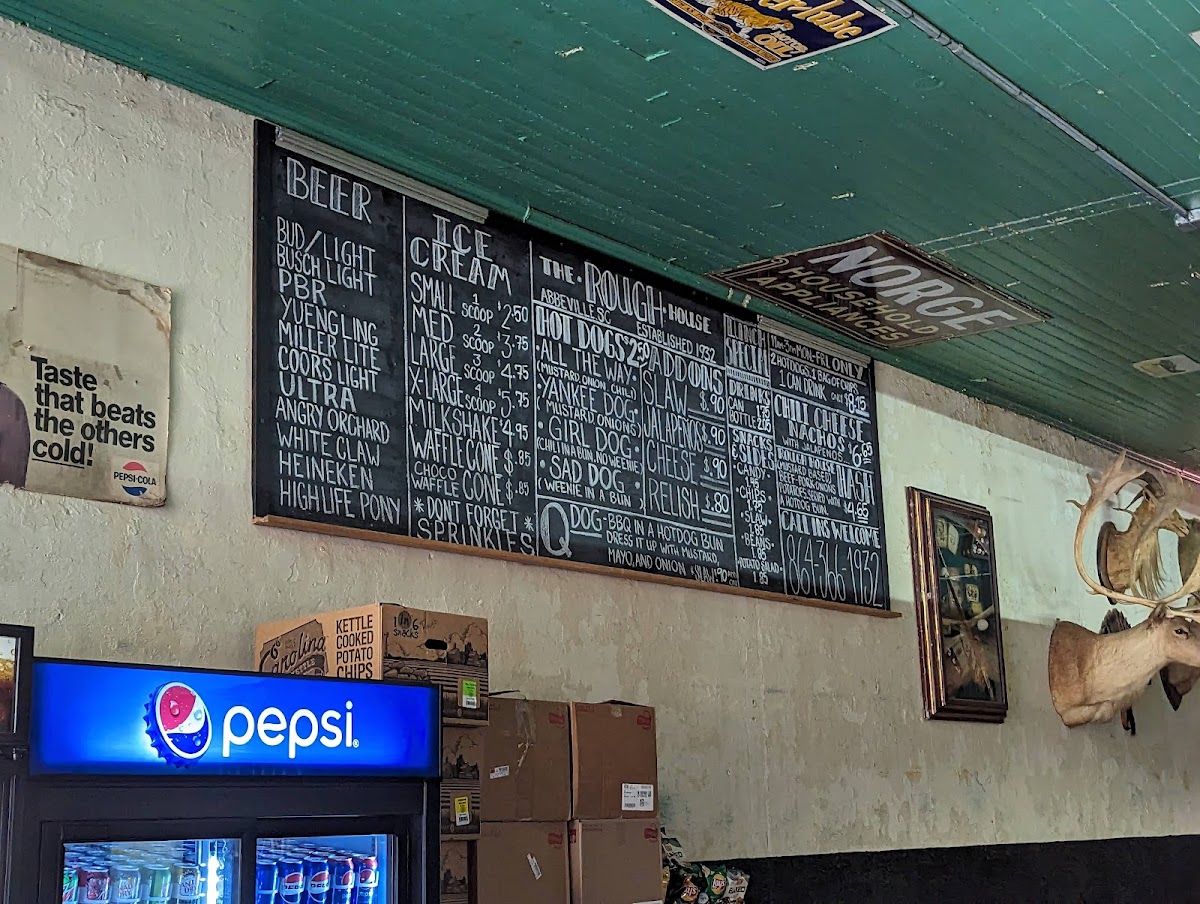 MOTOR
OIL
NORGE
HOUSEHOLD
APPLIANCES
Taste
that beats
the others
cold!
PEPSI-COLA
BEER
BUD/LIGHT
BUSCH LIGHT
PBR
YUENGLING
MILLER LITE
COORS LIGHT
ULTRA
ANGRY ORCHARD
WHITE CLAW
HEINEKEN
HIGH LIFE PONY
ICE
CREAM
SMALL 1 SCOOP $2.50
MED 2 SCOOP $3.75
LARGE 3 SCOOP $4.75
X-LARGE SCOOP $5.75
MILKSHAKE $4.95
WAFFLE CONE $.85
CHOCO WAFFLE CONE $.85
*DON'T FORGET*
SPRINKLES
THE · ROUGH · HOUSE
ABBEVILLE SC ESTABLISHED 1932
HOT DOGS
· ALL THE WAY ·
(MUSTARD, ONION, CHILI)
· YANKEE DOG ·
(MUSTARD ONIONS)
· GIRL DOG ·
(CHILI IN A BUN, NO WEENIE)
· SAD DOG ·
(WEENIE IN A BUN)
ADD ONS
SLAW $.90
JALAPENOS $.90
CHEESE $.90
RELISH $.80
Q DOG - BBQ IN A HOTDOG BUN
DRESS IT UP WITH MUSTARD,
MAYO, AND ONION
LUNCH
SPECIAL
11AM-3PM MON-FRI ONLY
2 HOTDOGS, 1 BAG OF CHIPS
1 CAN DRINK ONLY $8.15
DRINKS
CAN
BOTTLE
SNACKS
& SIDES
· CANDY ·
· CHIPS ·
· SLAW ·
1.85
· BEANS ·
1.85
POTATO SALAD
1.85
CHILI CHEESE
NACHOS
WITH JALAPENOS
HASH
A HOTDOG BUN
CALL INS WELCOME
864-366-1932
Carolina
KETTLE
COOKED
POTATO
CHIPS
pepsi